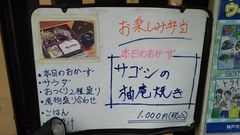 お楽しみ弁当
本日のおかず
サゴシの
柚庵焼き
1,000円(税込)
・本日のおかず
・サラダ
・おつくり2種盛り
・煮物盛り合わせ
・ごはん